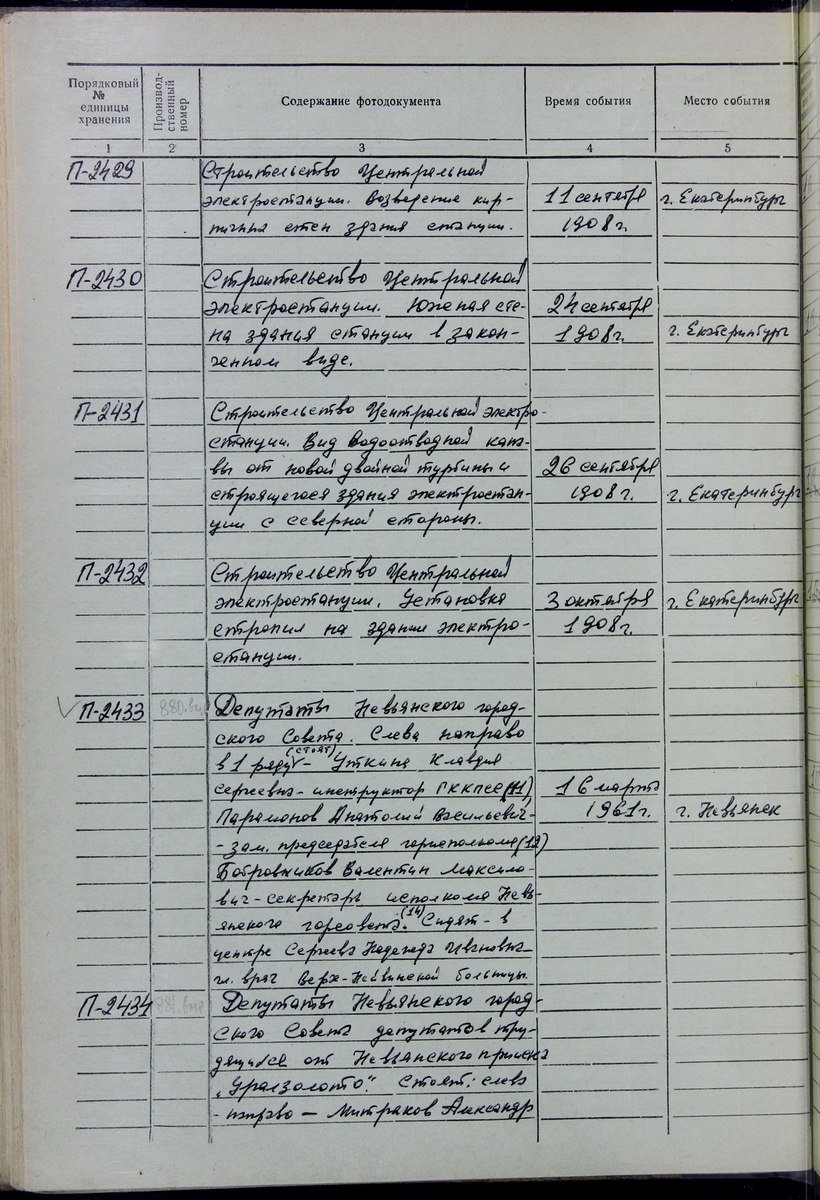 Порядковый № единицы хранения
Производ- ственный номер
Содержание фотодокумента
Время события
Место события
1 2 3 4 5
П-2429 Строительство Центральной
электростанции. Возведение кир- 11 сентября г. Екатеринбург
пичных стен здания станции. 1908 г.
П-2430 Строительство Центральной
электростанции. Южная сте- 24 сентября
на здания станции в закон- 1908 г. г. Екатеринбург
ченном виде.
П-2431 Строительство Центральной электро-
станции. Вид водоотводной кана-
вы от новой двойной турбины и 26 сентября
строящегося здания электростан- 1908 г. г. Екатеринбург
ции с северной стороны.
П-2432 Строительство Центральной
электростанции. Установка 3 октября г. Екатеринбург
стропил на здании электро- 1908 г.
станции.
П-2433 Депутаты Невьянского город-
ского Совета. Слева направо
в 1 ряду (стоят) - Уткина Клавдия
Сергеевна - инструктор ГККПСС (11) 16 марта
Парамонов Анатолий Васильевич- 1961 г. г. Невьянск
- зам. председателя горисполкома (12)
Бобровников Валентин Максимо-
вич - секретарь исполкома Невь-
янского горсовета. (14) Сидят - в
центре Сергеева Надежда Ивановна-
гл. врач Верх-Нейвинской больницы.
П-2434 Депутаты Невьянского город-
ского Совета депутатов тру-
дящихся от Невьянского прииска
"Уралзолото". Стоят: слева
- направо — Митраков Александр